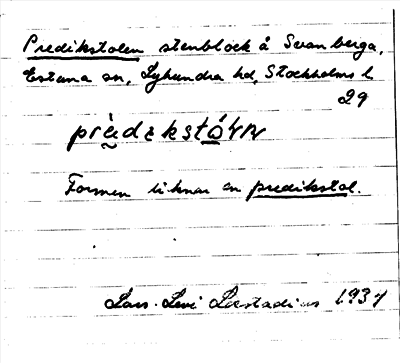 Predikstolen stenblock å Svanberga,
Estuna sn, Lyhundra hd, Stockholms l
29
Formen liknar en predikstol.
Lars-Levi Læstadius 1937